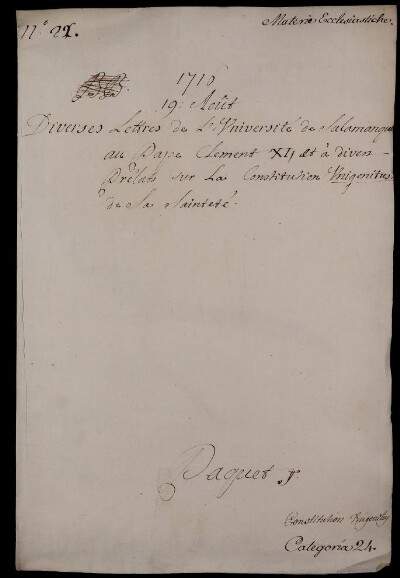 N.° 22.
Materie Ecclesiastiche.
1716
19. Aoùt
Diverses Lettres de L'Université de Salamanque
au Pape Clement XI, et à divers
Prélats sur La Constitution Unigenitus
de Sa Sainteté.
Paquet
Constitution Unigenitus
Categoria 24.